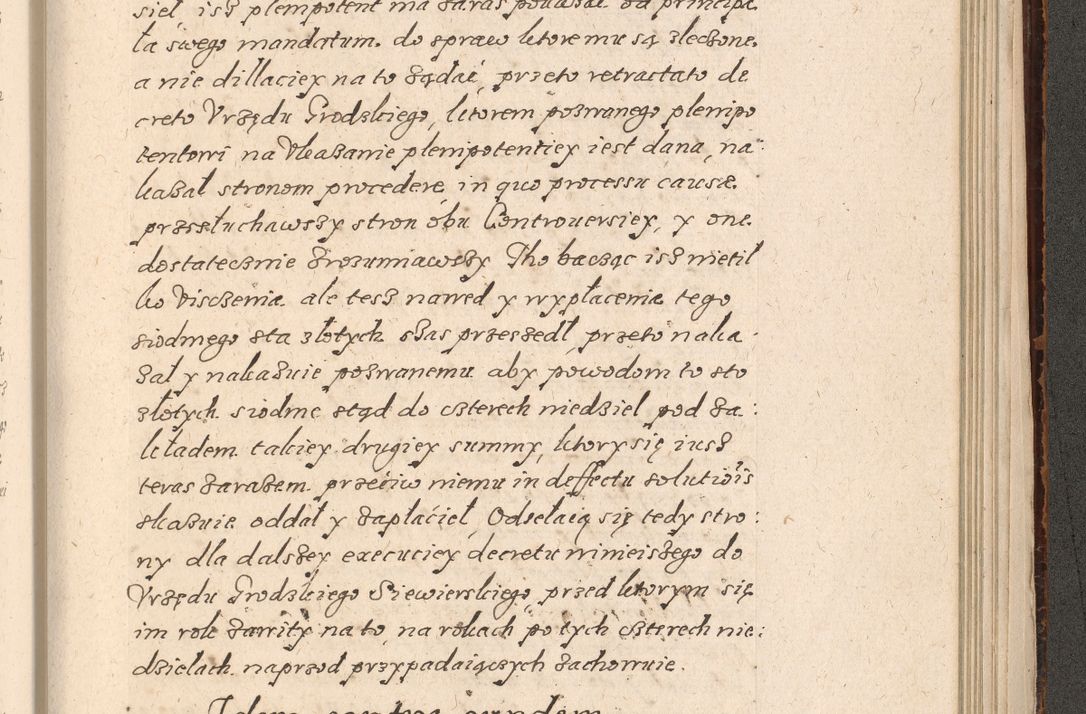 siel, isz plenipotent ma zaras pokazać od principa
ła swego mandatum. do spraw ktore mu są zleczone.
a nie dillaciey na to żądać, przeto retractato de
creto Vrzędu Grodzkiego, ktorem pozwanego plenipo
tentowi na Vkazanie plenipotentiey iest dana, na:
kazał stronom procedere, in quo processu causæ.
przesłuchawszy stron obu Controuersiey, y one.
dostatecznie zrozumiawszy Tho bacząc isz nietil
ko Visczenia. ale tesz nawed y wypłacenia tego
siodmego sta złotych czas przeszedł, przeto naka:
zał y nakazuie pozwanemu aby powodom to sto
złotych siodme stąd do czterech niedziel pod za:
kładem takiey drugiey summy, ktory się iusz
teras zarazem przeciw niemu in deffectu solutiois
skazuie oddał y zapłaciel, Odsełaią się tedy stro:
ny dla dalszey execuciey decretu ninieiszego do
Vrzędu Grodzkiego Siewierskiego, przed ktorym się
im rok zawity na to, na rokach po tych czterech nie:
dzielach naprzod przypadaiączych zachowuie.
Idem contra eundem